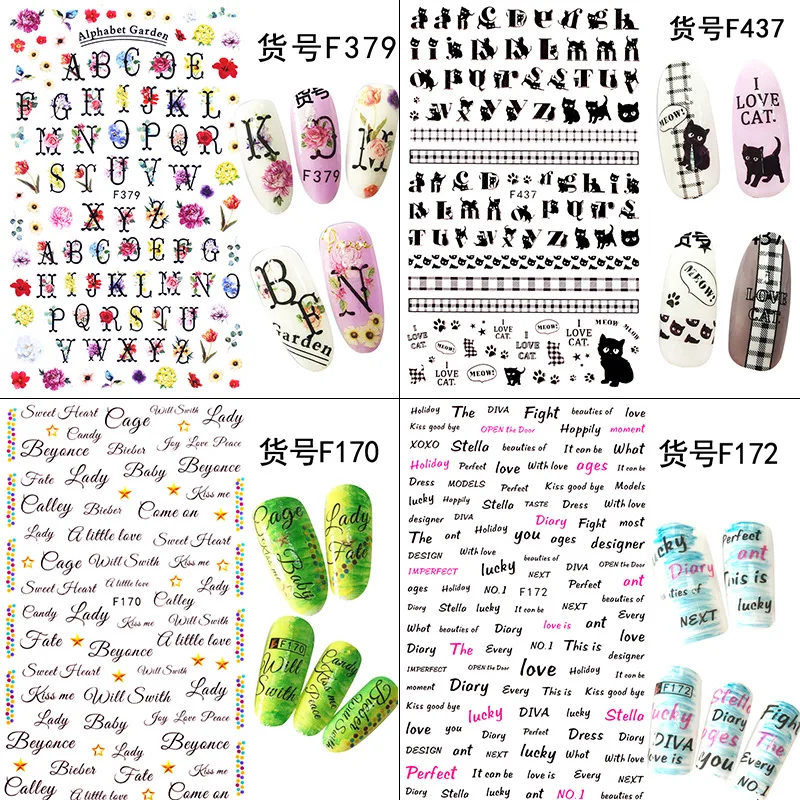 Alphabet Garden
A B C D E
F G H I J K L
M N O P Q R
S T U V W
F379
X Y Z
A B C D E F G
H I J K L M N O
P Q R S T U
V W X Y Z
货号F379
K O M
F379
B E N
Garden
货号F437
F437
I LOVE CAT.
MEOW!
MEOW!
I LOVE CAT.
MEOW!
I
LOVE
CAT.
MEOW!
I
LOVE
CAT.
货号F170
Sweet Heart Cage Will Swith Lady
Candy
Beyonce Bieber Joy Love Peace
Fate Lady Baby Beyonce
Kiss me
Calley Bieber Come on
Lady A little love Sweet Heart
Cage Will Swith Kiss me
Sweet Heart A little love Lady
F170 Calley
Candy Lady Kiss me Will Swith
Fate Beyonce A little love
Sweet Heart Will Swith
Kiss me Sweet Heart Lady
Lady Baby Joy Love Peace
Beyonce Lady Beyonce
Bieber Candy Kiss me
Calley Baby Lady Come on
Cage
Baby
Lady
Fate
F170
Will
Swith
Candy
Kiss me
Peace
Bieber
Will Swith
货号F172
Holiday The DIVA Fight beauties of love
Kiss good bye OPEN the Door Happily moment
XOXO Stella beauties of It can be What
Holiday Perfect love With love ages It can be
Dress MODELS Perfect Kiss good bye Models
lucky Happily Stella TASTE Dress With love
designer DIVA Diary Fight most
The ant Holiday you ages designer
DESIGN With love beauties of
IMPERFECT lucky NEXT DIVA OPEN the Door
ages Holiday NO.1 F172 Perfect ant
Diary Stella lucky It can be NEXT Every
What beauties of Diary love is ant love
Diary The Every NO.1 This is designer
IMPERFECT OPEN the Door love Holiday It can be
moment Diary Every This is Kiss good bye
Kiss good bye lucky DIVA lucky Stella
love you Diary Perfect Dress Diary
DESIGN ant NEXT lucky What love
Perfect It can be love is Every
Diary Stella love ant NO.1 This is
lucky
Diary
beauties of
NEXT
Perfect
ant
This is
lucky
F172
lucky
DIVA
love is
Stella
Diary
ages
you
Fight
The
Every
NO.1